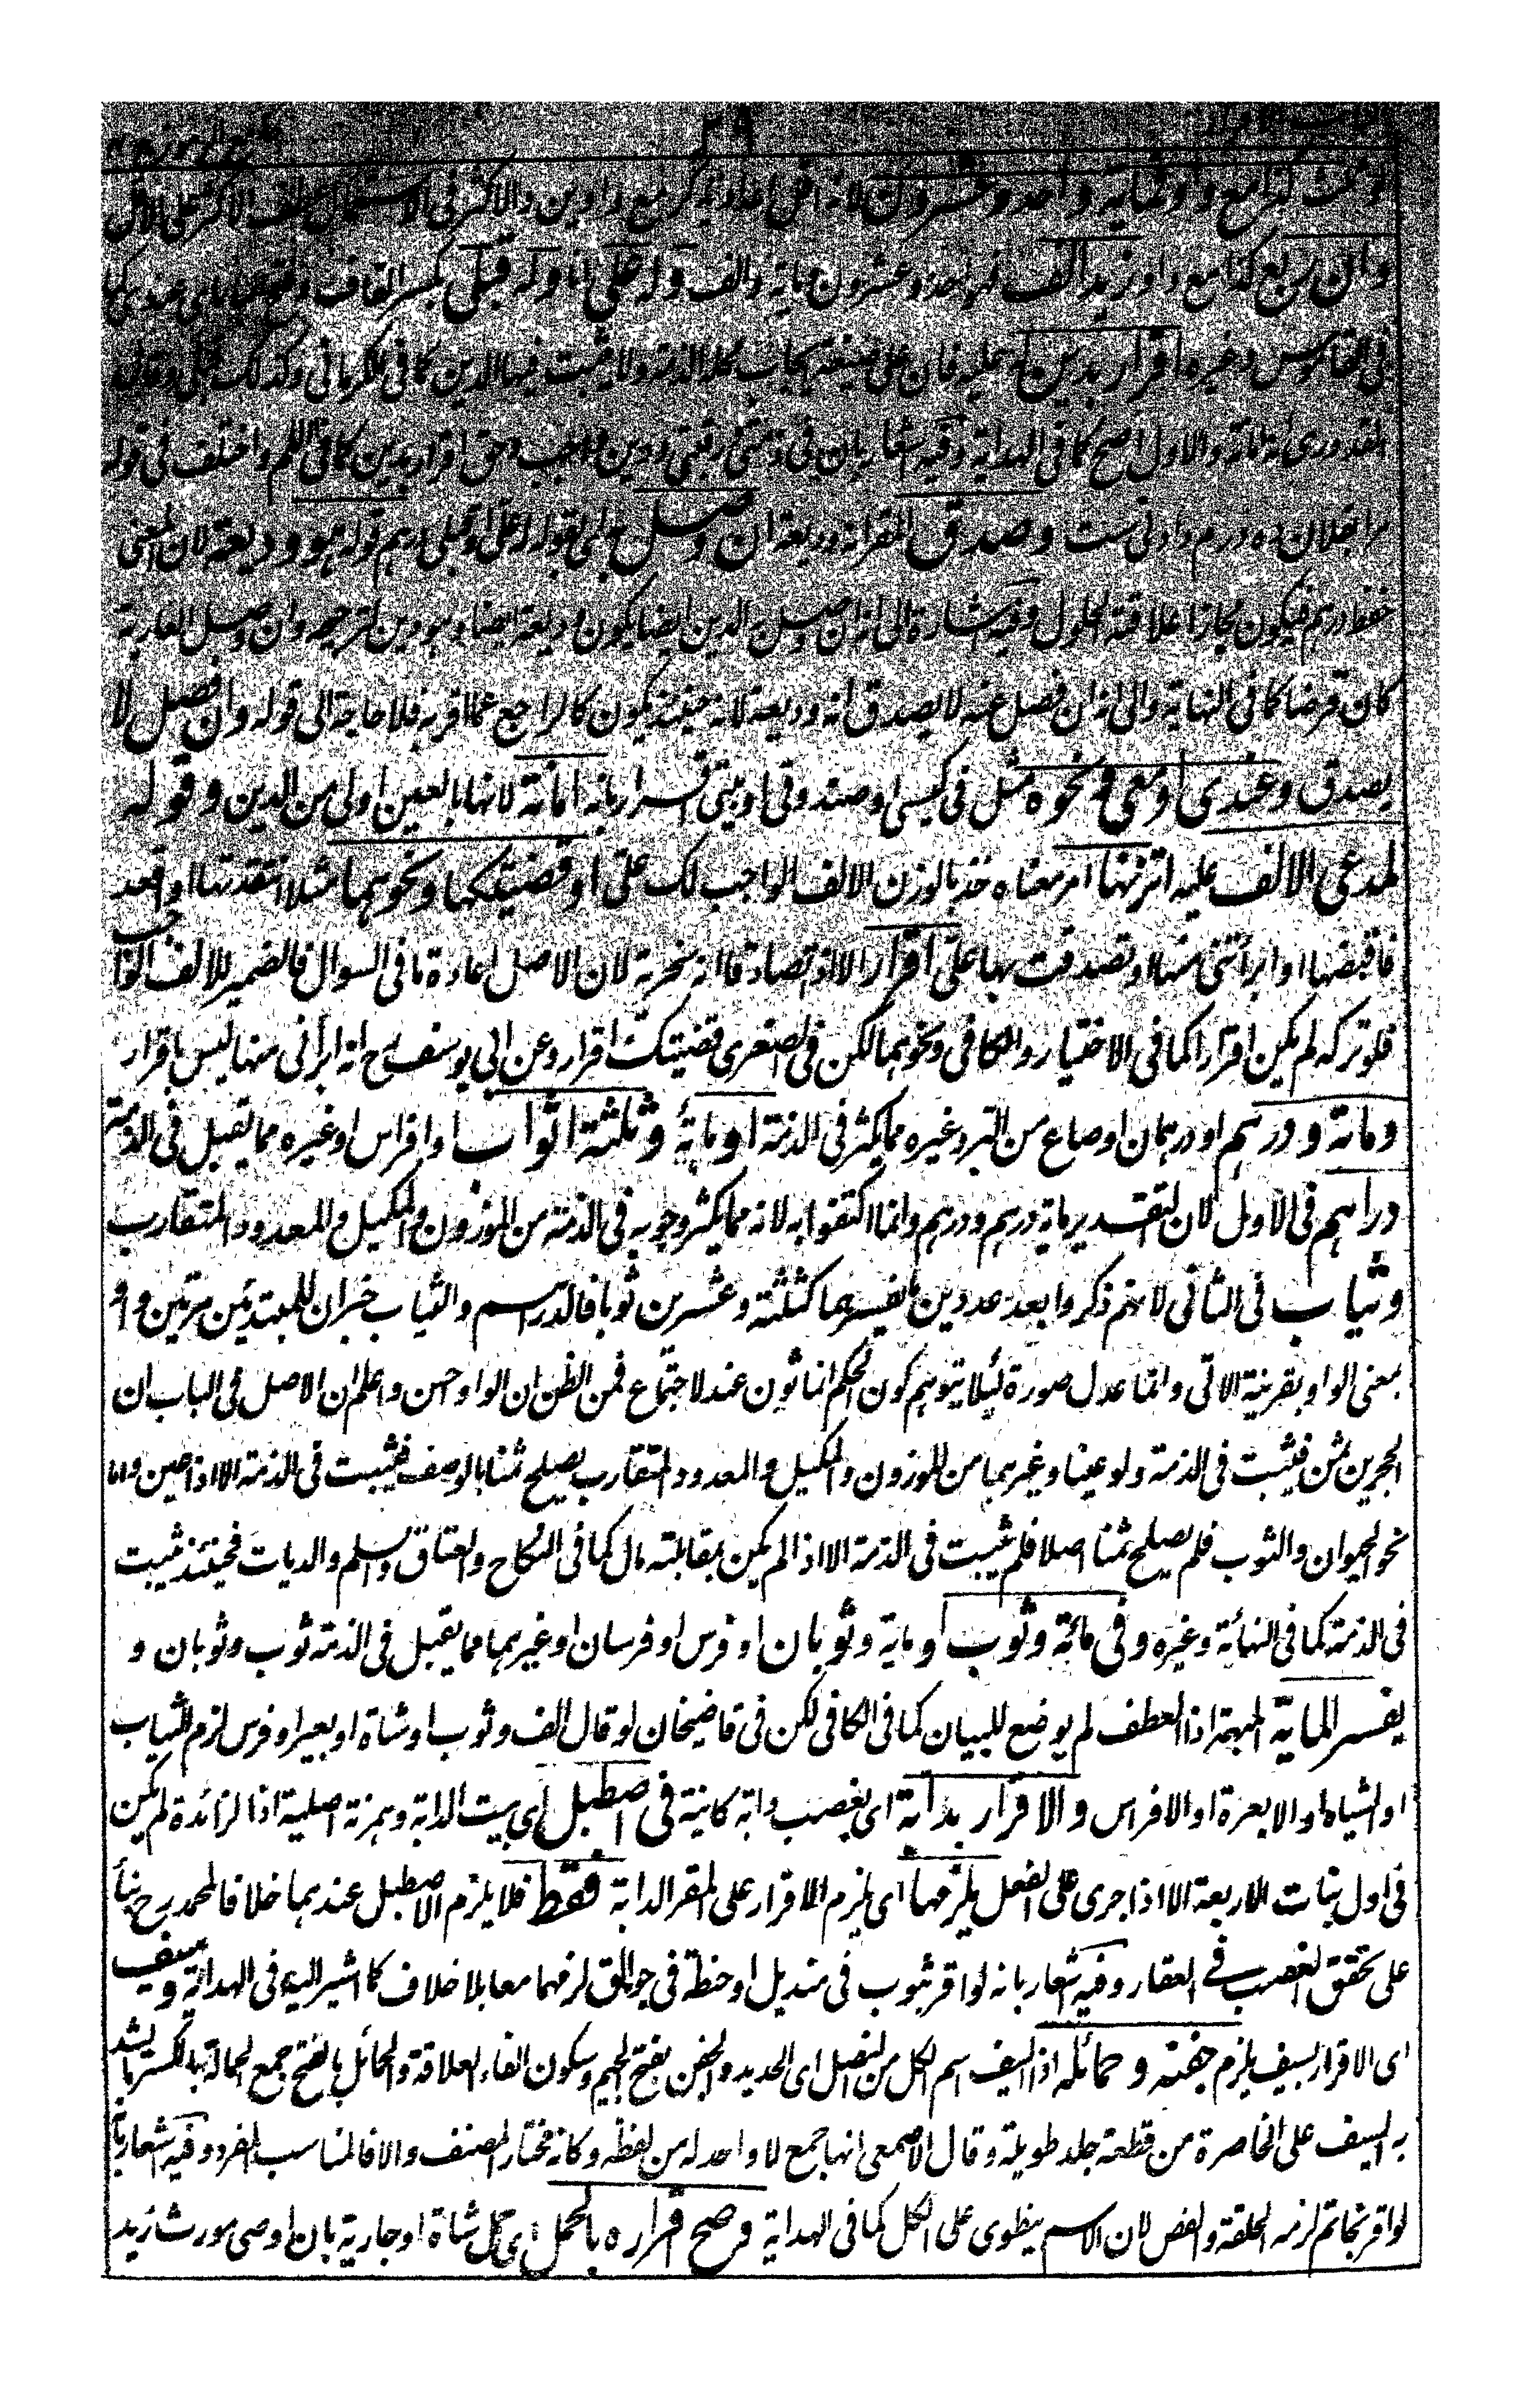 كتاب الاقرار ٢٩ جامع الرموز ج ٣
لو ثلث كذا مع واو فمأية واحد وعشرون لانه اقل اعداد يذكر مع واوين والاكثر فى الاستعمال عطف الاكثر على الاقل
وان ربع كذا مع واو زيد الف فهو احد وعشرون ماية والف وله على انا وله قبلى بكسر القاف وفتح
فى القاموس وغيره اقرار بدين عليه فان على صيغة ايجاب ولانه يثبت فيها الدين كما فى الكرمانى وكذلك قبلى وقال
القدورى انه امانة والاول اصح كما فى الهداية وفيه اشعار بان فى ذمتى او رقبتى ودين واجب وحق اقرار بدين كما فى واختلف فى قوله
مرا بفلان ده درم دادنى ست وصدق المقر انه وديعة ان وصل به اى بقوله له على او قبلى درهم قوله هو وديعة لان المعنى
حفظ درهم فيكون مجازا علاقته الحلول وفيه اشارة الى انه ان وصل بالدين ايضا يكون وديعة ايضا وهو دين لترجيحه وان وصل العارية
كان قرضا كما فى النهاية والى انه ان فصل عنه لا يصدق انه وديعة لانه حينئذ يكون كالراجع عما اقر به فلا حاجة الى قوله وان فصل لا
يصدق وعندى او معى ونحوه مثل فى كيسى او صندوقى او بيتى اقرار بانه امانة لانها بالعين اولى من الدين وقوله
لمدعى الالف عليه اتزنها امر معناه خذ بالوزن الالف الواجب لك على او قضيتكها ونحوهما مثلا انتقدتها او اقعد
فاقبضها او ابرأتنى منها او تصدقت بها على اقرار الا اذا تصادقا انه سخرية لان الاصل اعادة ما فى السوال فالضمير للالف الواجب
فلو تركه لم يكن اقرارا كما فى الاختيار والكافى ونحوهما لكن فى الصغرى قضيتك اقرار وعن ابى يوسف رح انه ابرأنى منها ليس باقرار
ومائة ودرهم او درهمان او صاع من البر وغيره مما يكثر فى الذمة او مائة وثلثة اثواب او افراس او غيره مما يقبل فى الذمة
دراهم فى الاول لان التقدير ماية درهم ودرهم وانما اكتفوا به لانه مما يكثر وجوبه فى الذمة من الموزون والمكيل والمعدود المتقارب
وثياب فى الثانى لانهم ذكروا بعد عددين ما يفسرهما كثلثة وعشرين ثوبا فالدراهم والثياب خبران للمبتدئين مرتين واو
بمعنى الواو بقرينة الاتى وانما عدل صورة لئلا يتوهم كون الحكم انما تكون عند الاجتماع فمن الظن ان الواو احسن واعلم ان الاصل فى الباب ان
الحجرين ثمن فيثبت فى الذمة ولو عينا وغيرهما من الموزون والمكيل والمعدود المتقارب يصلح ثمنا بالوصف فيثبت فى الذمة الا اذا عين واما
نحو الحيوان والثوب فلم يصلح ثمنا اصلا فلم يثبت فى الذمة الا اذا لم يكن بمقابلته مال كما فى النكاح والعتاق والسلم والديات فحينئذ يثبت
فى الذمة كما فى النهاية وغيره وفى مائة وثوب او ماية وثوبان او فرس او فرسان او غيرهما مما يقبل فى الذمة ثوب وثوبان و
يفسر الماية المبهمة اذا العطف لم يوضع للبيان كما فى الكافى لكن فى قاضيخان لو قال الف وثوب او شاة او بعير او فرس لزم الثياب
او الشياه او الابعرة او الافراس والاقرار بدابة اى بغصب دابة كاينة فى اصطبل اى بيت الدابة وهمزته اصلية اذا لزائدة لم يكن
فى اول بنات الاربعة الا اذا جرى على الفعل يلزمها اى يلزم الاقرار على المقر الدابة فقط فلا يلزم الاصطبل عندهما خلافا لمحمد رح بناء
على تحقق الغصب فى العقار وفيه اشعار بانه لو اقر بثوب فى منديل او حنطة فى جوالق لزمهما معا بلا خلاف كما اشير اليه فى الهداية وبسيف
اى الاقرار بسيف يلزم جفنه وحمائله اذا السيف اسم الكل من النصل اى الحديد والجفن بفتح الجيم وسكون الفاء العلاقة والحمائل بالفتح جمع الحمالة بالكسر ما يشد
به السيف على الخاصرة من قطعة جلد طويلة وقال الاصمعى انها جمع لا واحد له من لفظه وكانه مختار المصنف والا فالمناسب المفرد وفيه اشعار بانه
لو اقر بخاتم لزمه الحلقة والفص لان الاسم ينطوى على الكل كما فى الهداية وصح اقراره بالحمل اى حمل شاة او جارية بان اوصى مورث زيد